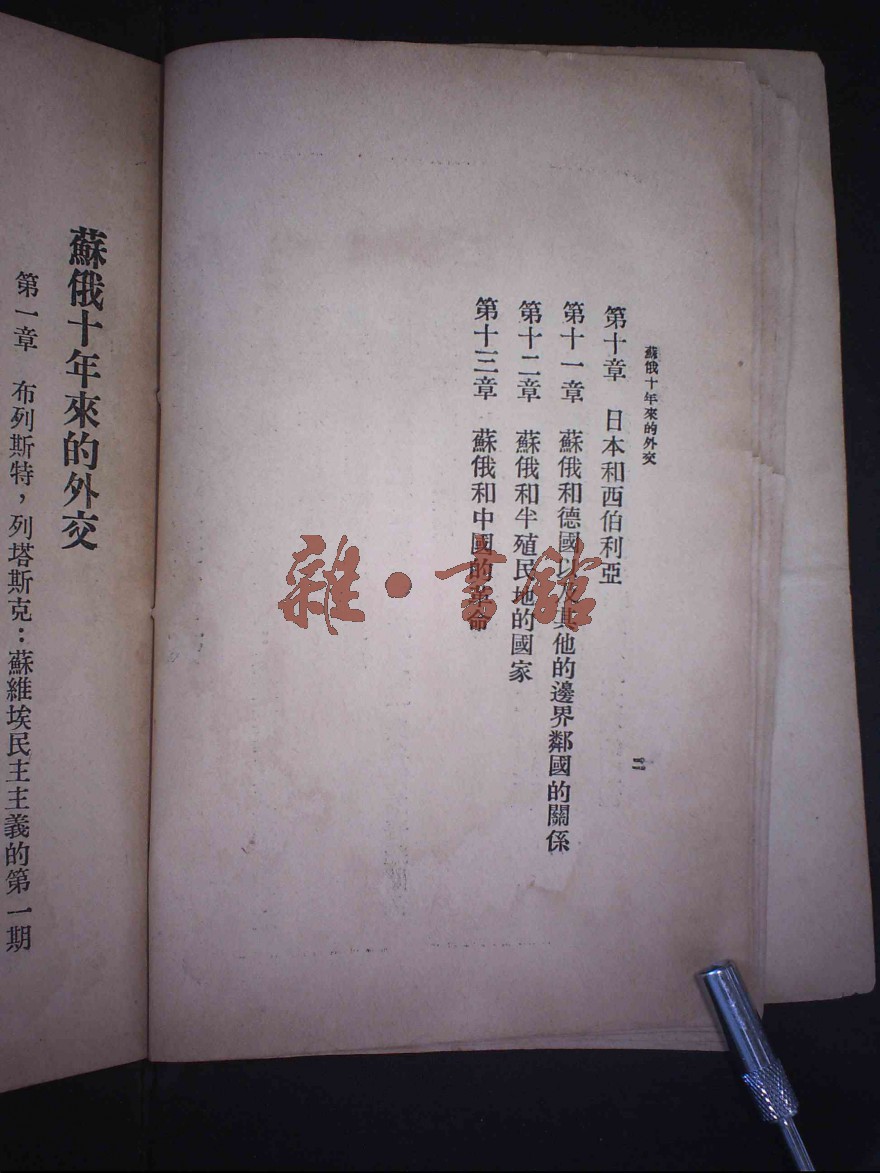 蘇俄十年來的外交
第十章　日本和西伯利亞
第十一章　蘇俄和德國以及其他的邊界鄰國的關係
第十二章　蘇俄和半殖民地的國家
第十三章　蘇俄和中國的革命
二
雜·書館
蘇俄十年來的外交
第一章　布列斯特，列塔斯克：蘇維埃民主主義的第一期